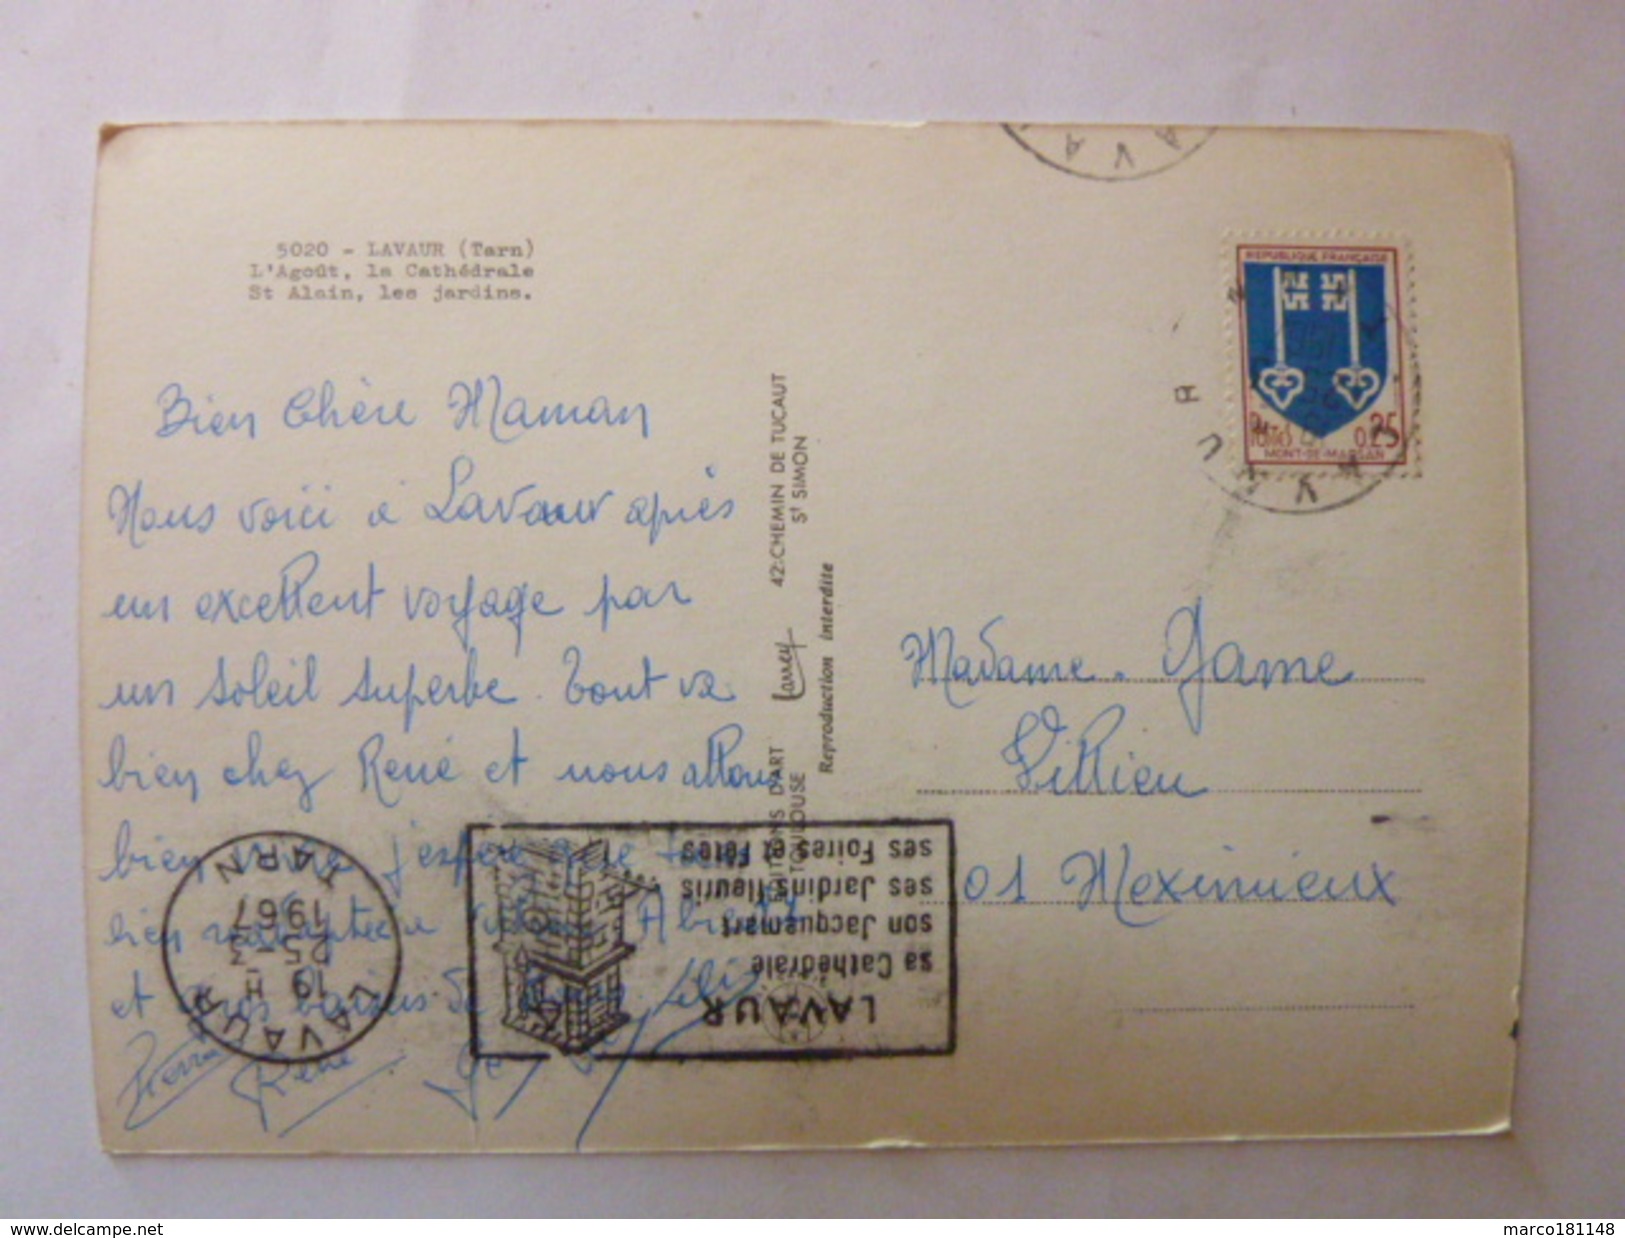 5020 - LAVAUR (Tarn)
L'Agoût, la Cathédrale
St Alain, les jardins.
Bien Chère Maman
Nous voici à Lavaur après
un excellent voyage par
un soleil superbe. Tout va
bien chez René et nous allons
bien vivre j'espère que
bien
et baisers de
Pierre René
EDITIONS D'ART Larrey 42.CHEMIN DE TUCAUT
TOULOUSE St SIMON
Reproduction interdite
LAVAUR
19 H
25-3
1967
TARN
LAVAUR
sa Cathédrale
son Jacquemart
ses Jardins fleuris
ses Foires et Fêtes
AVA
REPUBLIQUE FRANÇAISE
POSTES 0,25
MONT-DE-MARSAN
LAVAUR
Madame. Game
Villieu
01 Meximieux
www.delcampe.net
marco181148